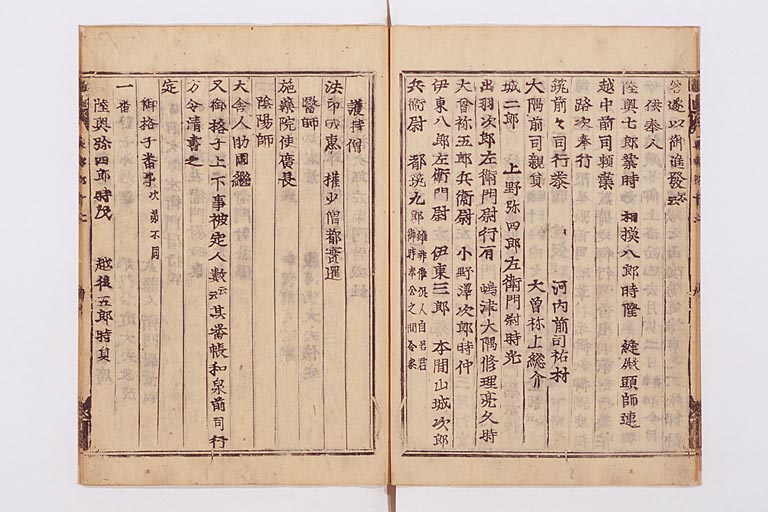 遂以御進發云々
供奉人
陸奥七郎業時　相摸八郎時隆　縫殿頭師連
越中前司頼業
路次奉行
筑前々司行泰　河内前司祐村
大隅前司親員　大曾祢上総介
城二郎　上野弥四郎左衛門尉時光
出羽次郎左衛門尉行有　嶋津大隅修理亮久時
大曾祢五郎兵衛尉　小野澤次郎時仲
伊東八郎左衛門尉　伊東三郎　本間山城次郎
兵衛尉　都筑九郎
護持僧
法印　權少僧都實選
醫師
施藥院使廣長
陰陽師
大舎人助国継
又御格子上下事被定人數云云其番帳和泉前司行
方令清書之
定
御格子番事次第不同
一番
陸奥弥四郎時茂　越後五郎時員